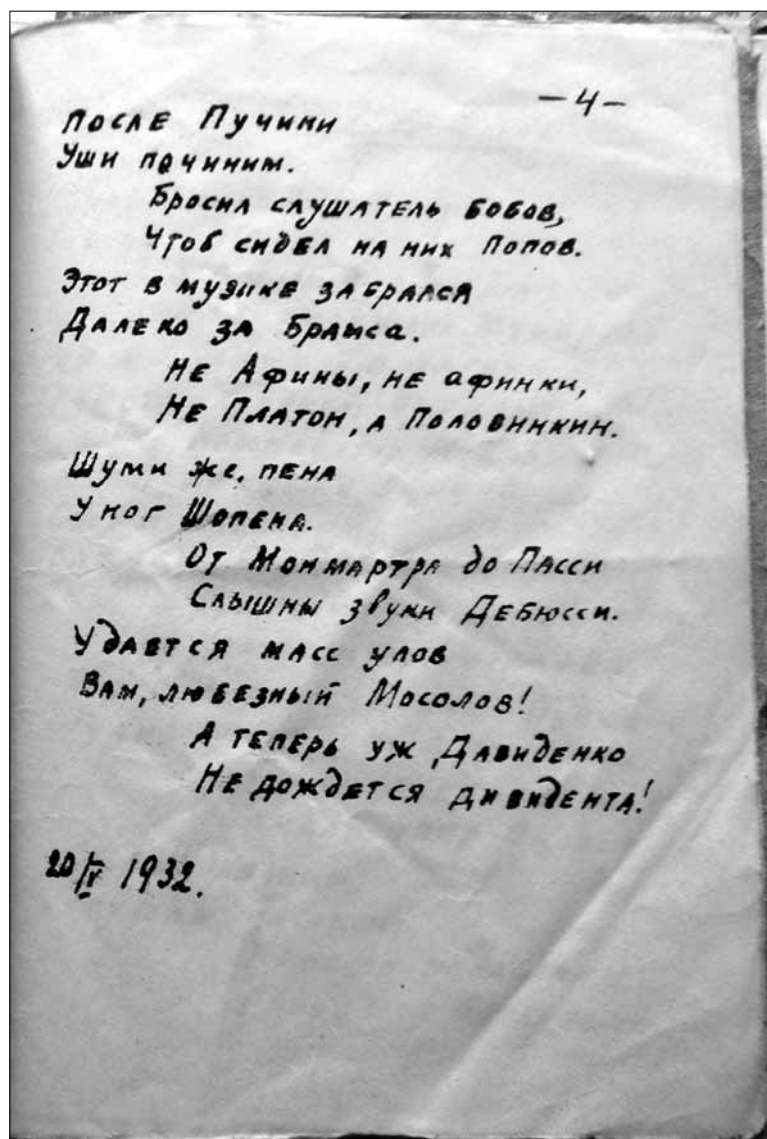 -4-
После Пучини
Уши починим.
Бросил слушатель бобов,
Чтоб сидел на них Попов.
Этот в музыке забрался
Далеко за Брамса.
Не Афины, не афинки,
Не Платон, а Половинкин.
Шуми же, пена
У ног Шопена.
От Монмартра до Пасси
Слышны звуки Дебюсси.
Удается масс улов
Вам, любезный Мосолов!
А теперь уж Давиденко
Не дождется дивидента!
20/V 1932.